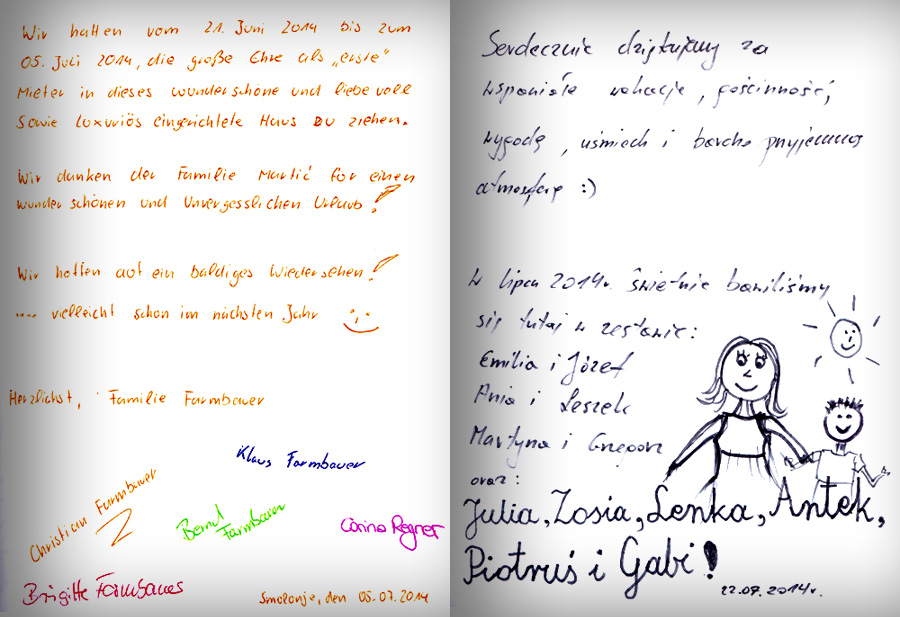 Wir hatten vom 21. Juni 2014 bis zum
05. Juli 2014, die große Ehre als „erste"
Mieter in dieses wunderschöne und liebevoll
sowie luxuriös eingerichtete Haus zu ziehen.
Wir danken der Familie Martić für einen
wunderschönen und unvergesslichen Urlaub!
Wir hoffen auf ein baldiges Wiedersehen!
.... vielleicht schon im nächsten Jahr
Herzlichst, Familie Farmbauer
Klaus Farmbauer
Christian Farmbauer
Bernd
Farmbauer
Corina Regner
Brigitte Farmbauer
Smolonje, den 05.07.2014
Serdecznie dziękujemy za
wspaniałe wakacje, gościnność,
wygodę, uśmiech i bardzo przyjemną
atmosferę :)
W lipcu 2014r. świetnie bawiliśmy
się tutaj w zestawie:
Emilia i Józef
Ania i Leszek
Martyna i Grzegorz
oraz:
Julia, Zosia, Lenka, Antek,
Piotruś i Gabi!
22.07.2014r.